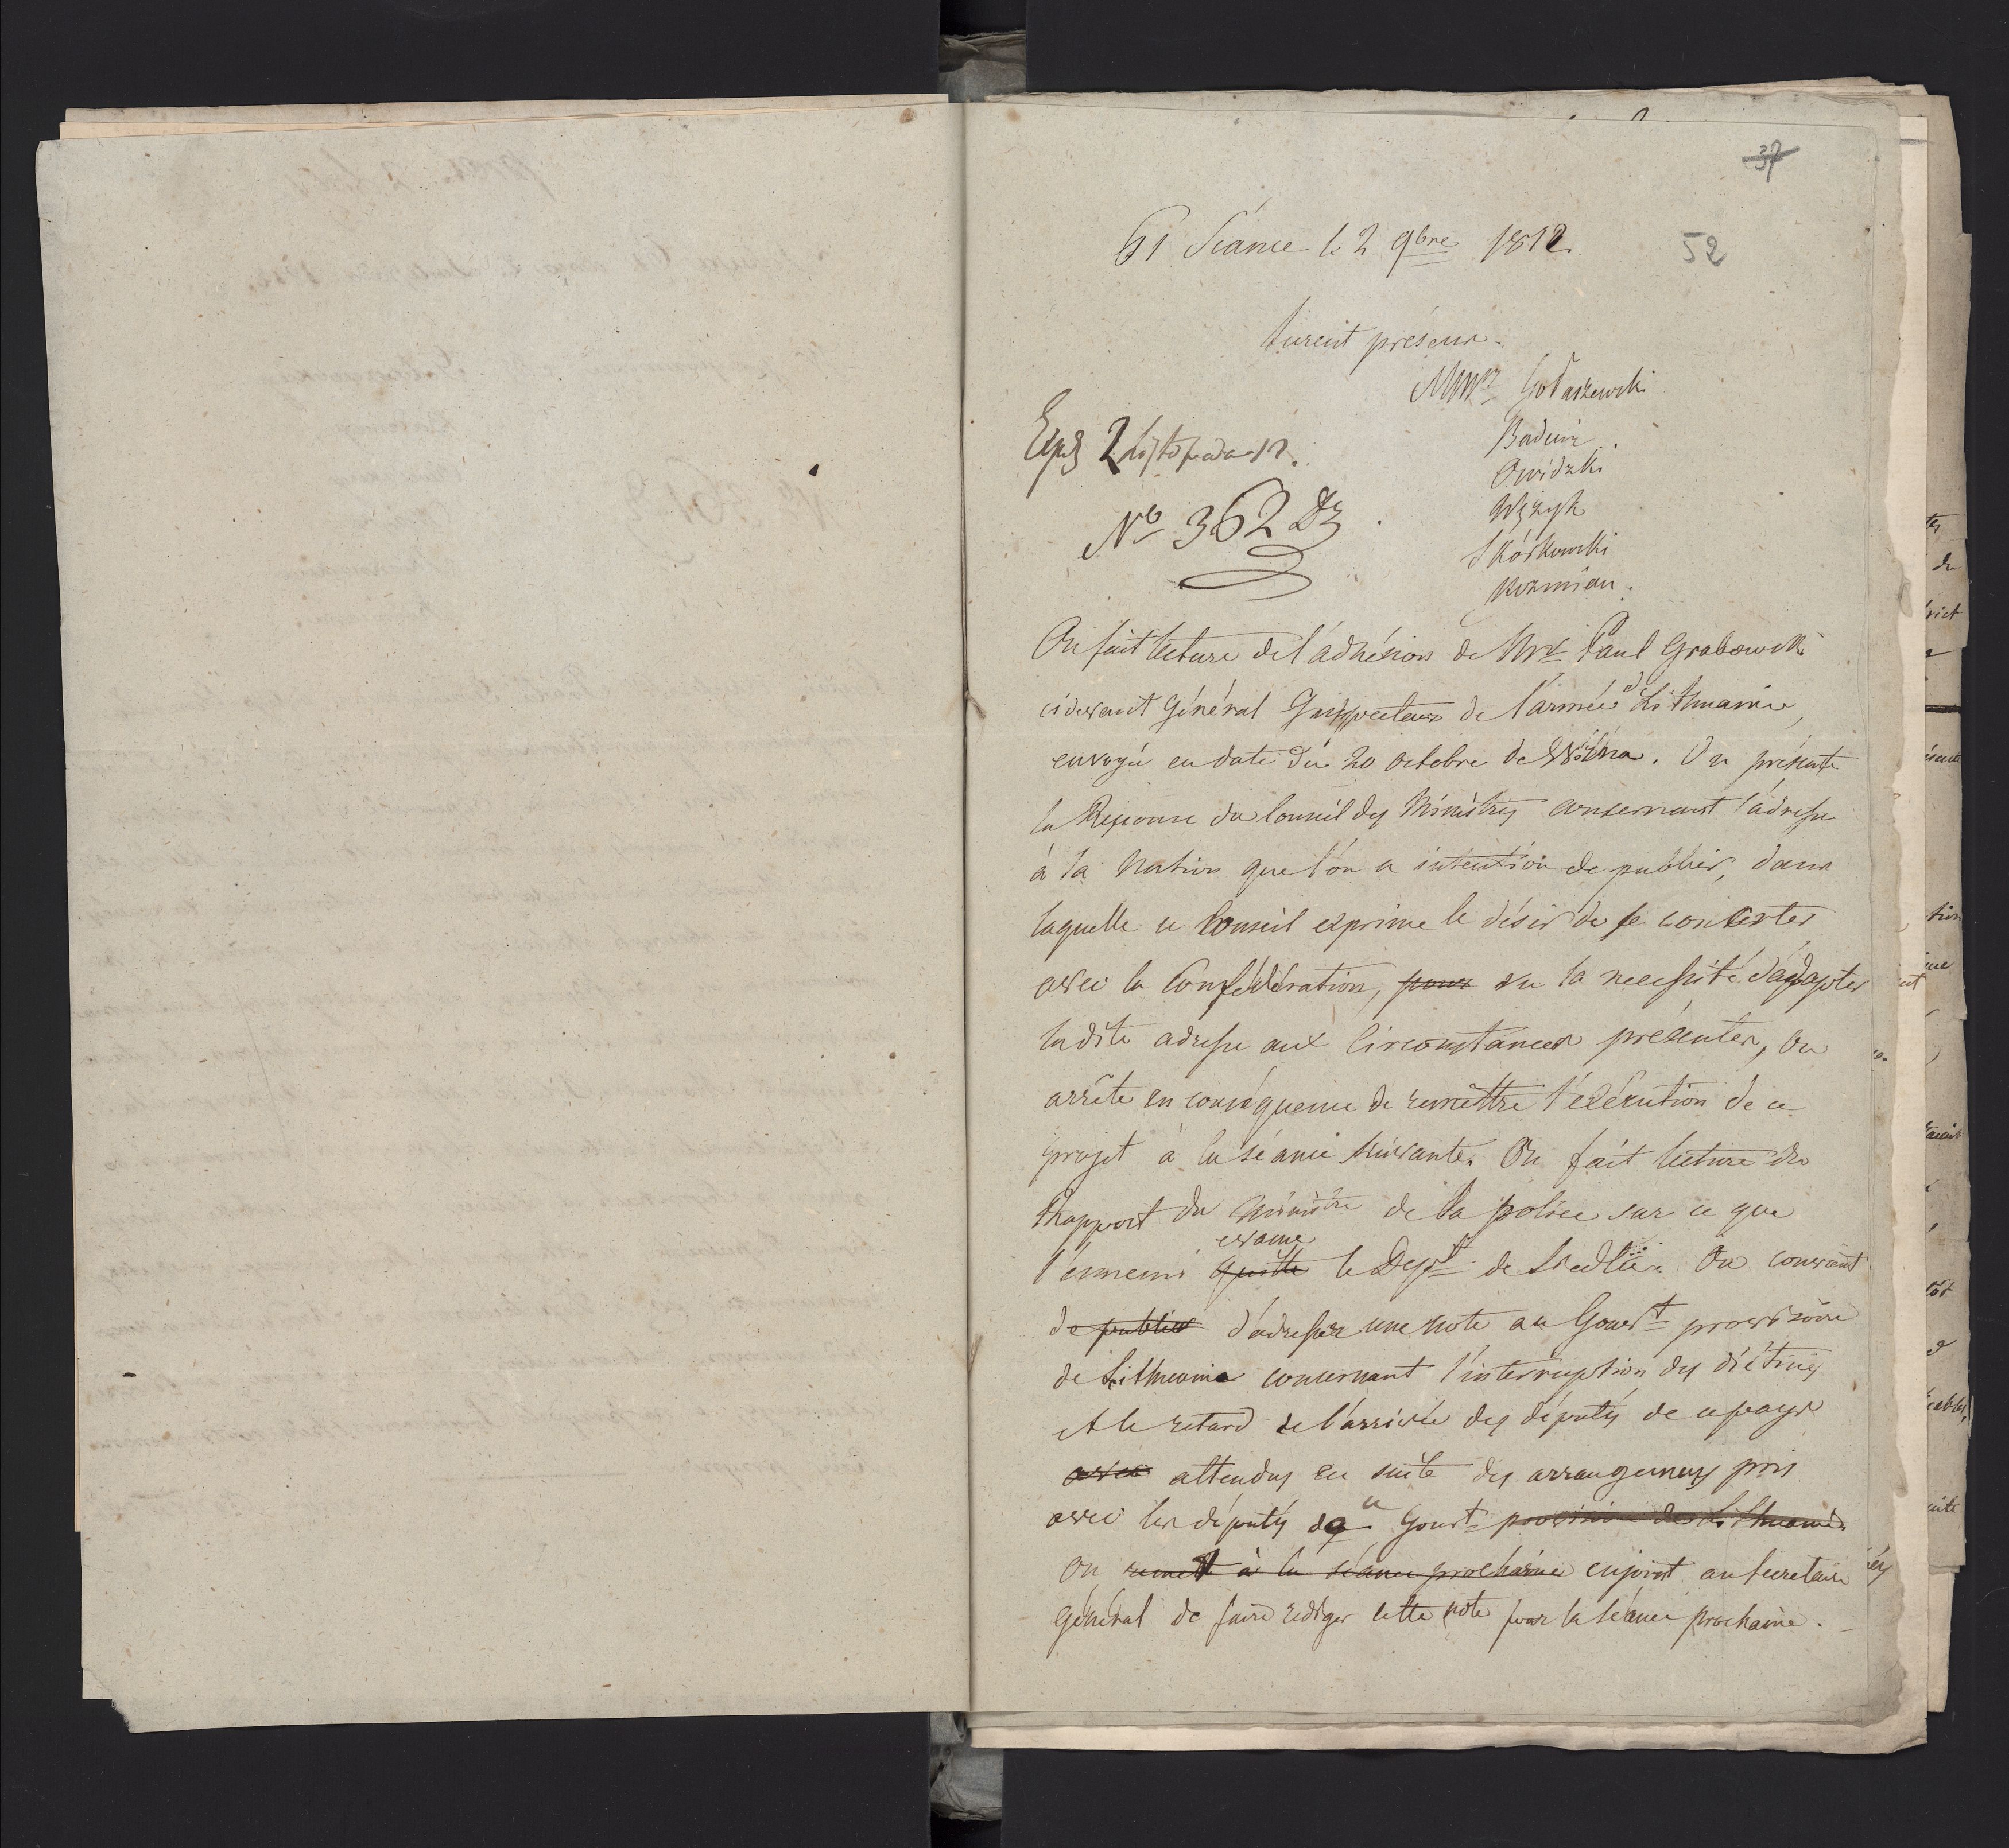 37
52
61 Séance le 2 9bre 1812.
furent présens.
Mrrs Gołaszewski
Badeni.
Owidzki
Wężyk
Skórkowski
Kozmian.
Exp 2 Listopada 12.
No 362 Dz
On fait lecture de l'adhésion de Mr Paul Grabowski
cidevant Général Inspecteur de l'armée d Lithuanie,
envoyé en date du 20 Octobre de Wilna. On présente
la Réponse du Conseil des Ministres concernant l'adresse
à la Nation que l'on a intention de publier, dans
laquelle ce Conseil exprime le désir de se concerter
avec la Confédération, pour vu la necessité d'adapter
ladite adresse aux Circonstances présentes, On
arrête en conséquence de remettre l'exécution de ce
projet à la séance suivante. On fait lecture du
Rapport du Ministre de la police sur ce que
evacue
l'ennemi quitte le Dept de Siedlce. On convient
de publier d'adresser une note au Gouvt provisoire
de Lithuanie concernant l'interruption des diétines
et le retard de l'arrivée des députés de ce pays
avec attendus en suite des arrangemens pris
avec les députés de ce Gouvt provisoire de Lithuanie.
On remet à la séance prochaine enjoint au Secretaire
Général de faire rediger cette note pour la séance prochaine.